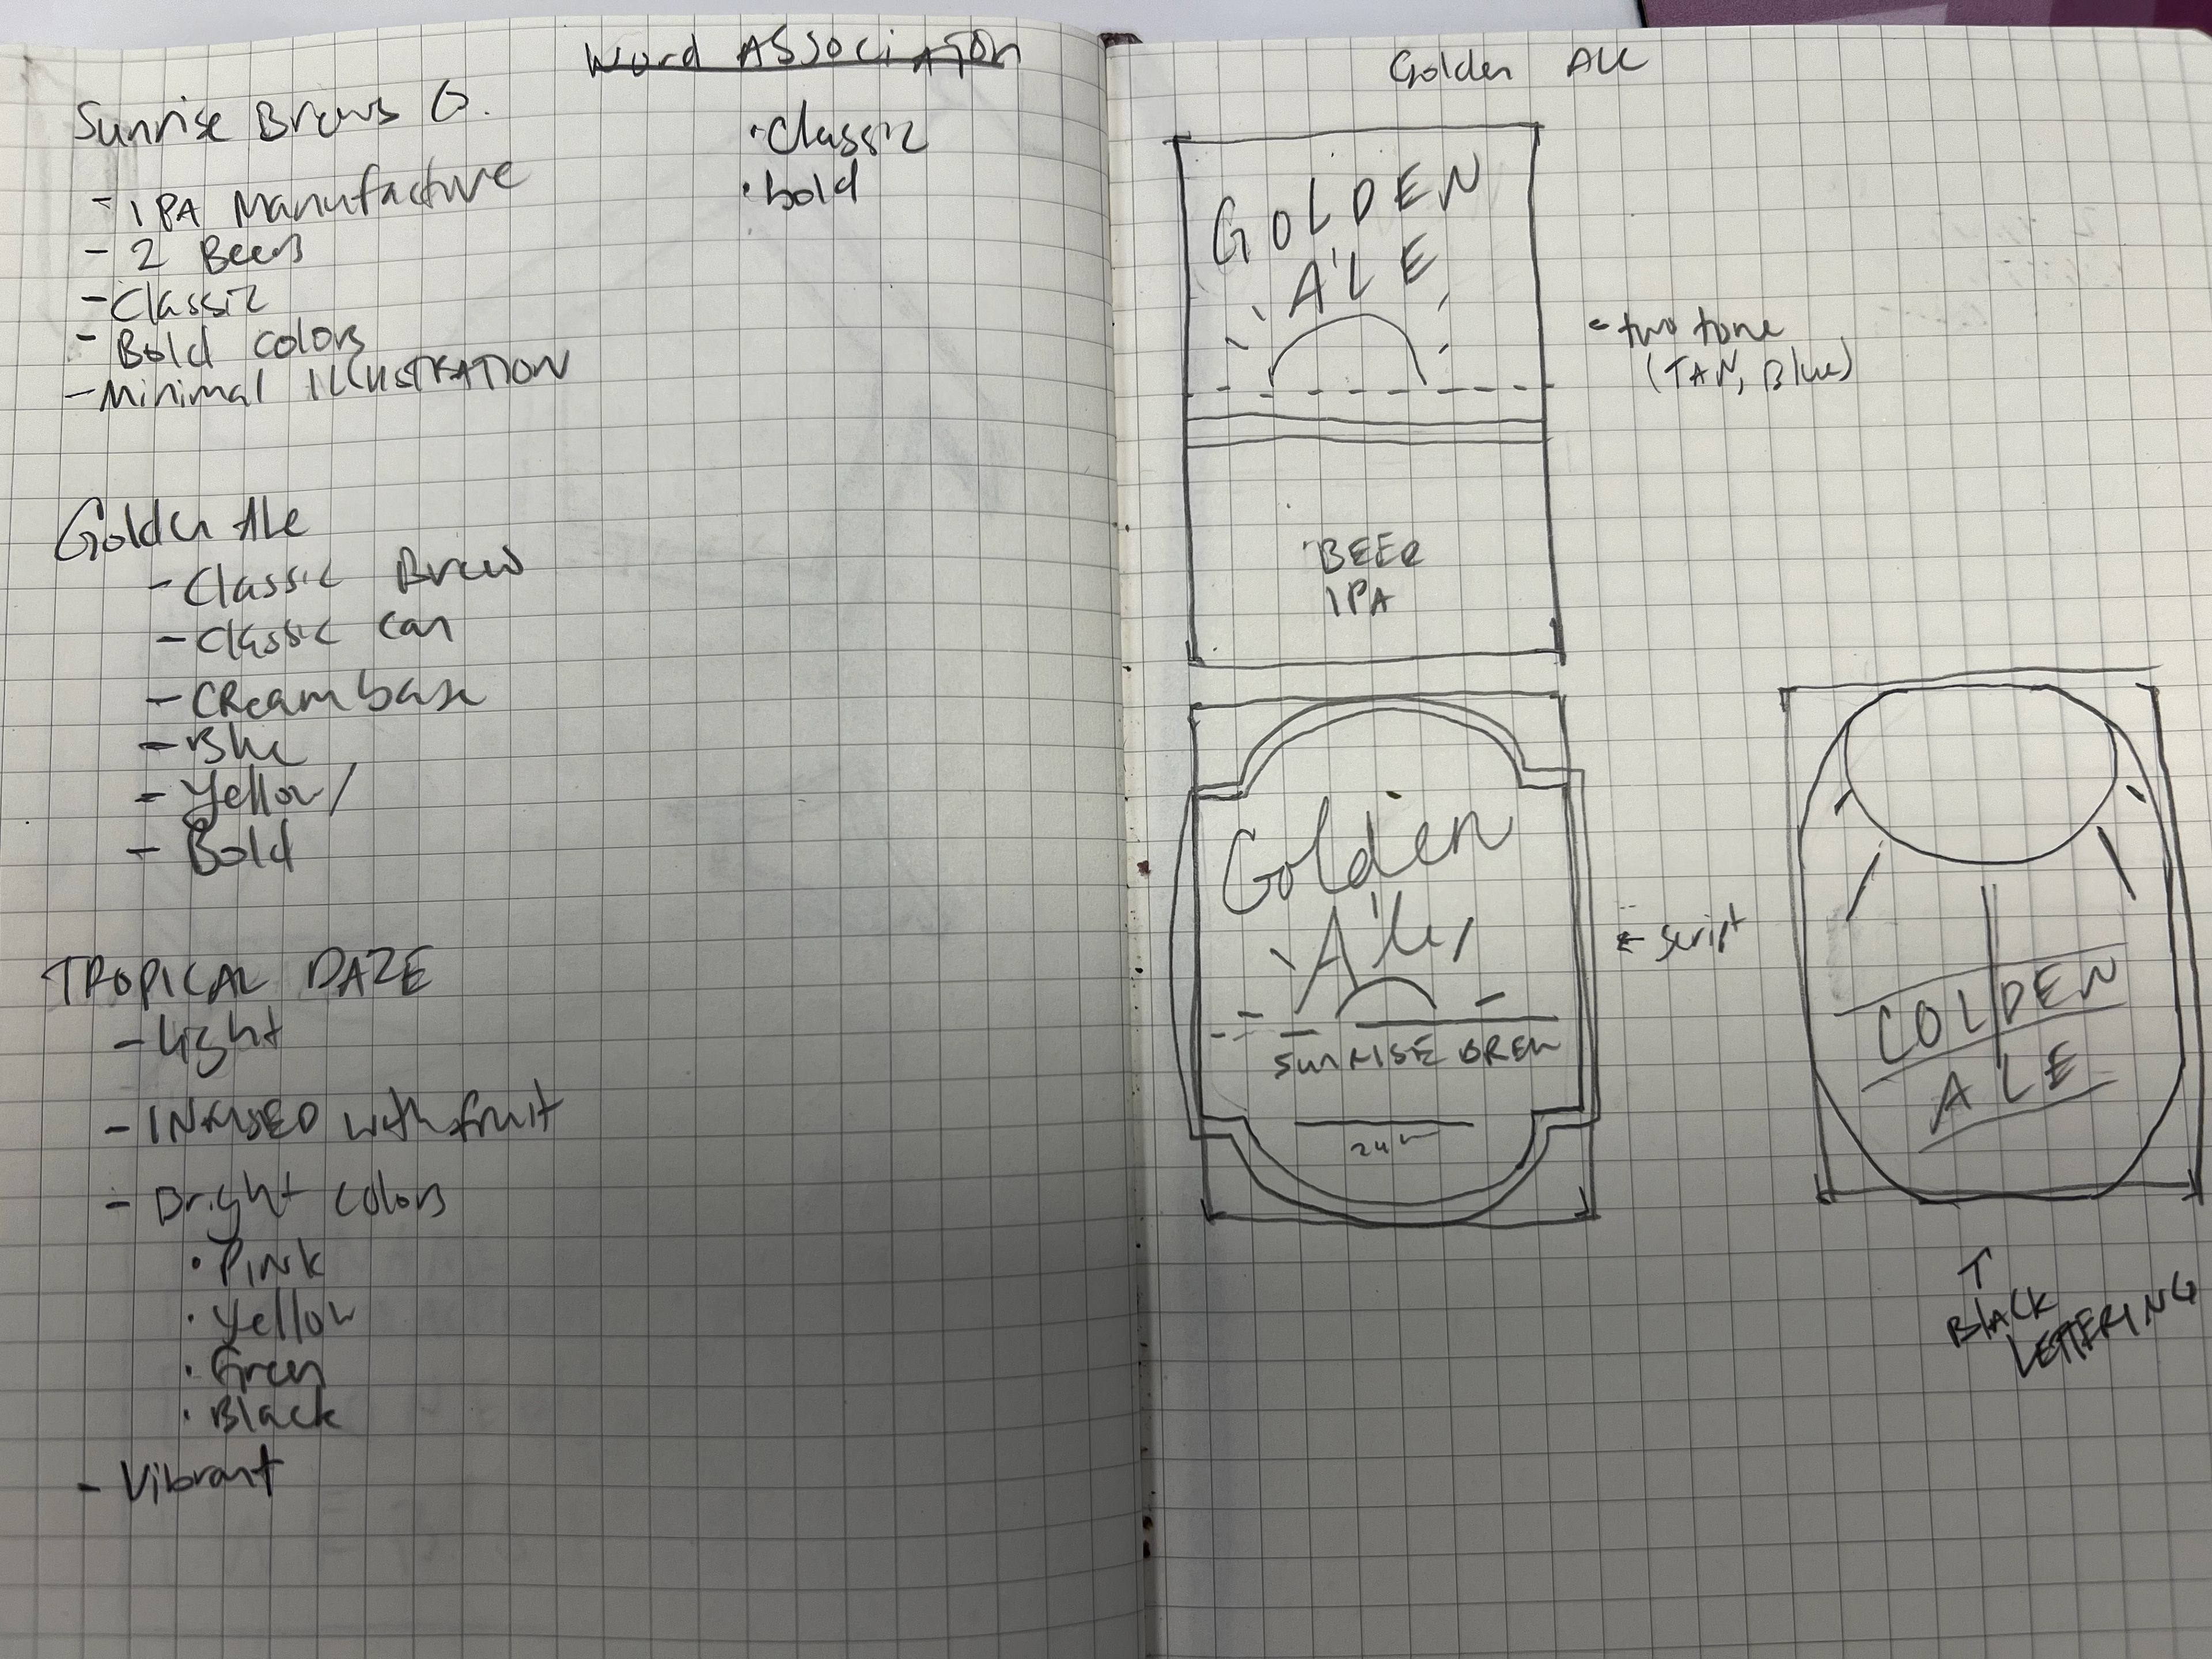 Word Association
Sunrise Brews Co.
- IPA Manufacture
- 2 Beers
- Classic
- Bold colors
- Minimal ILLUSTRATION
• Classic
• bold
Golden Ale
- Classic Brew
- Classic can
- CReam base
- Blue
- Yellow/
- Bold
TROPICAL DAZE
- Light
- INFUSED with fruit
- Bright colors
• PINK
• Yellow
• Green
• Black
- Vibrant
Golden Ale
GOLDEN
ALE
BEER
IPA
← two tone
(TAN, Blue)
Golden
Ale
SUNRISE BREW
← script
GOLDEN
ALE
↑
BlACK
LETTERING